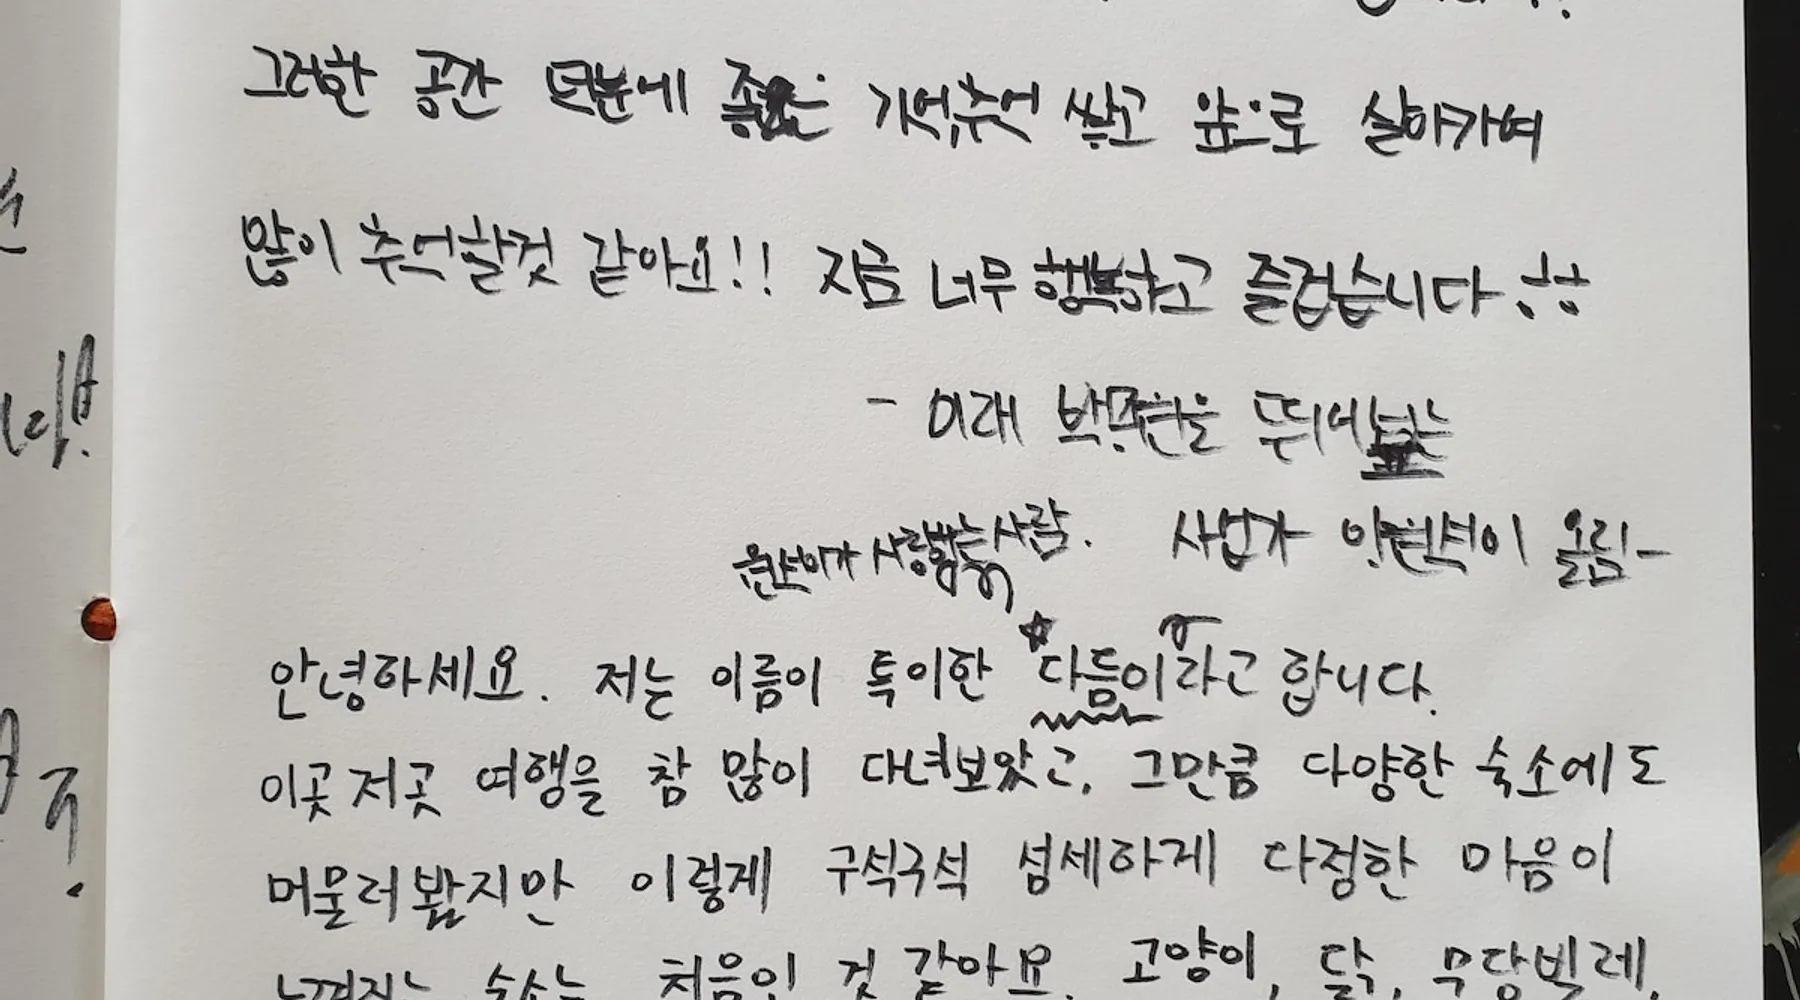 그러한 공간 덕분에 좋은 기억, 추억 쌓고 앞으로 살아가며
많이 추억할것 같아요!! 지금 너무 행복하고 즐겁습니다
- 이래 을 뛰어넘는
사랑하는 사람. 사업가 이 올림-
안녕하세요. 저는 이름이 특이한 다듬이라고 합니다.
이곳저곳 여행을 참 많이 다녀보았고, 그만큼 다양한 숙소에도
머물러봤지만 이렇게 구석구석 섬세하게 다정한 마음이
느껴지는 숙소는 처음인 것 같아요. 고양이, 닭, 무당벌레,